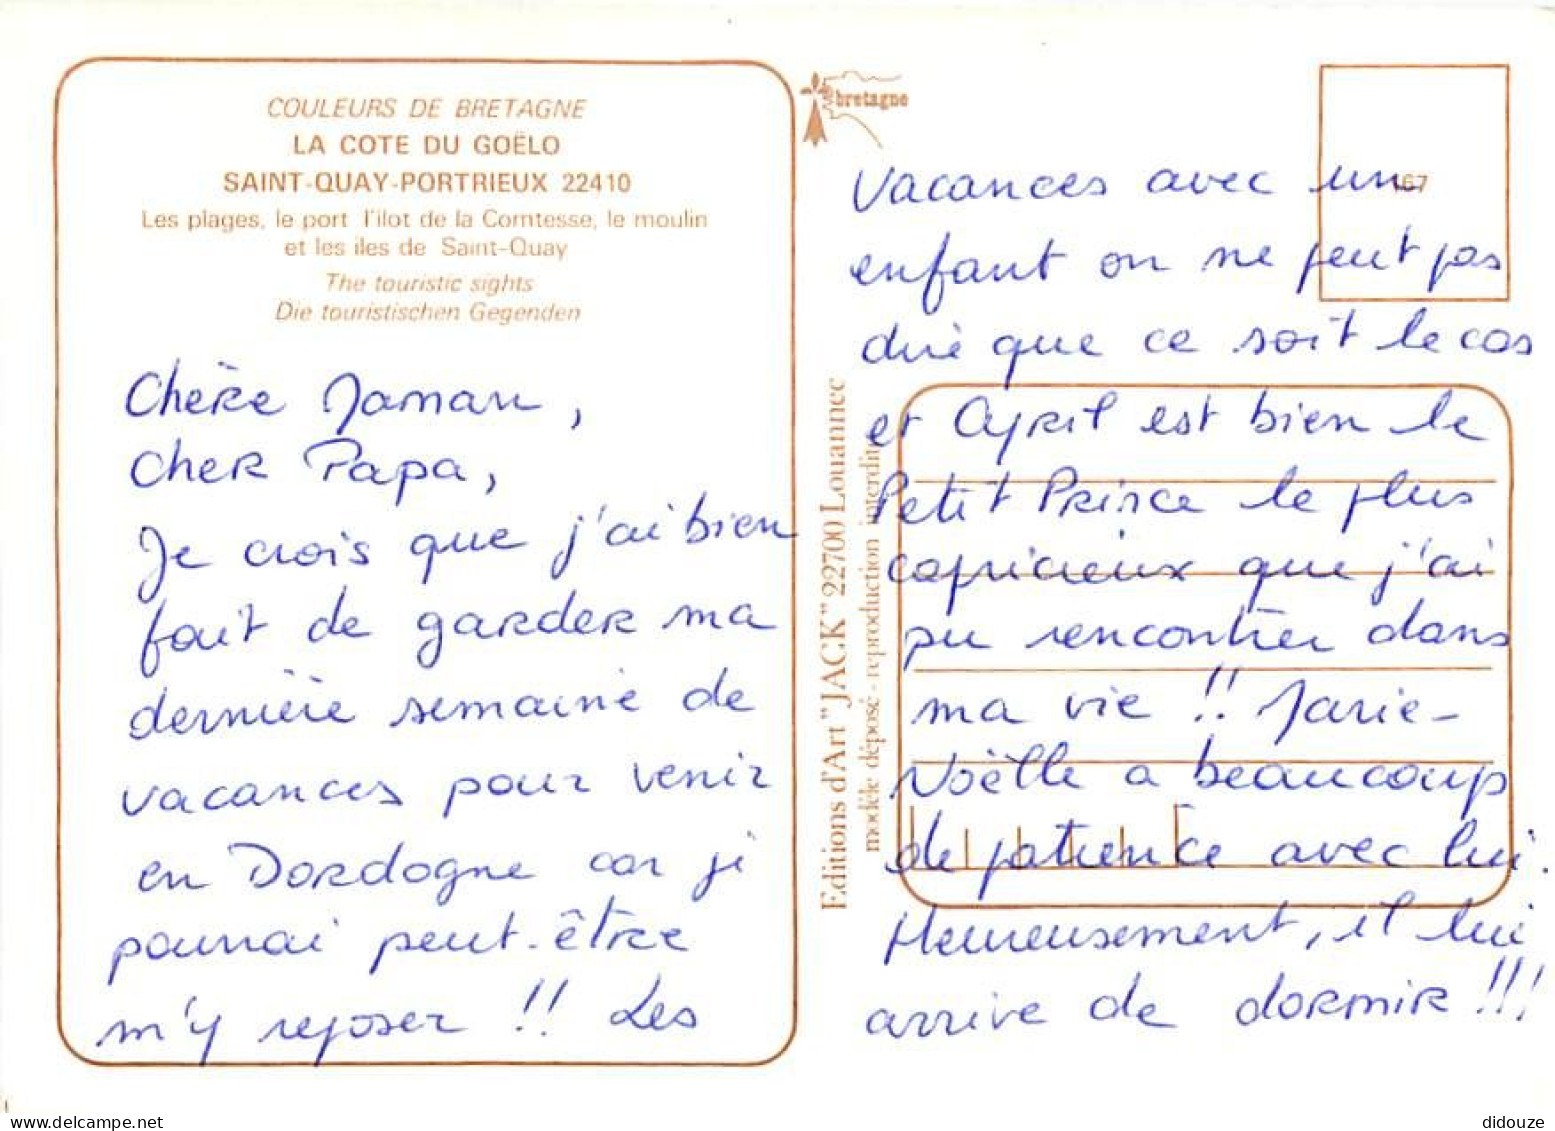 COULEURS DE BRETAGNE
LA COTE DU GOËLO
SAINT-QUAY-PORTRIEUX 22410
Les plages, le port l'ilot de la Comtesse, le moulin
et les iles de Saint-Quay
The touristic sights
Die touristischen Gegenden
Chère Maman,
Cher Papa,
Je crois que j'ai bien
fait de garder ma
dernière semaine de
vacances pour venir
en Dordogne car je
pourrai peut-être
m'y reposer !! Les
bretagne
167
vacances avec un
enfant on ne peut pas
dire que ce soit le cas
et Cyril est bien le
Petit Prince le plus
capricieux que j'ai
pu rencontrer dans
ma vie !! Marie-
Noëlle a beaucoup
de patience avec lui.
Heureusement, il lui
arrive de dormir !!!
Editions d'Art "JACK" 22700 Louannec
modèle déposé - reproduction interdite
didouze